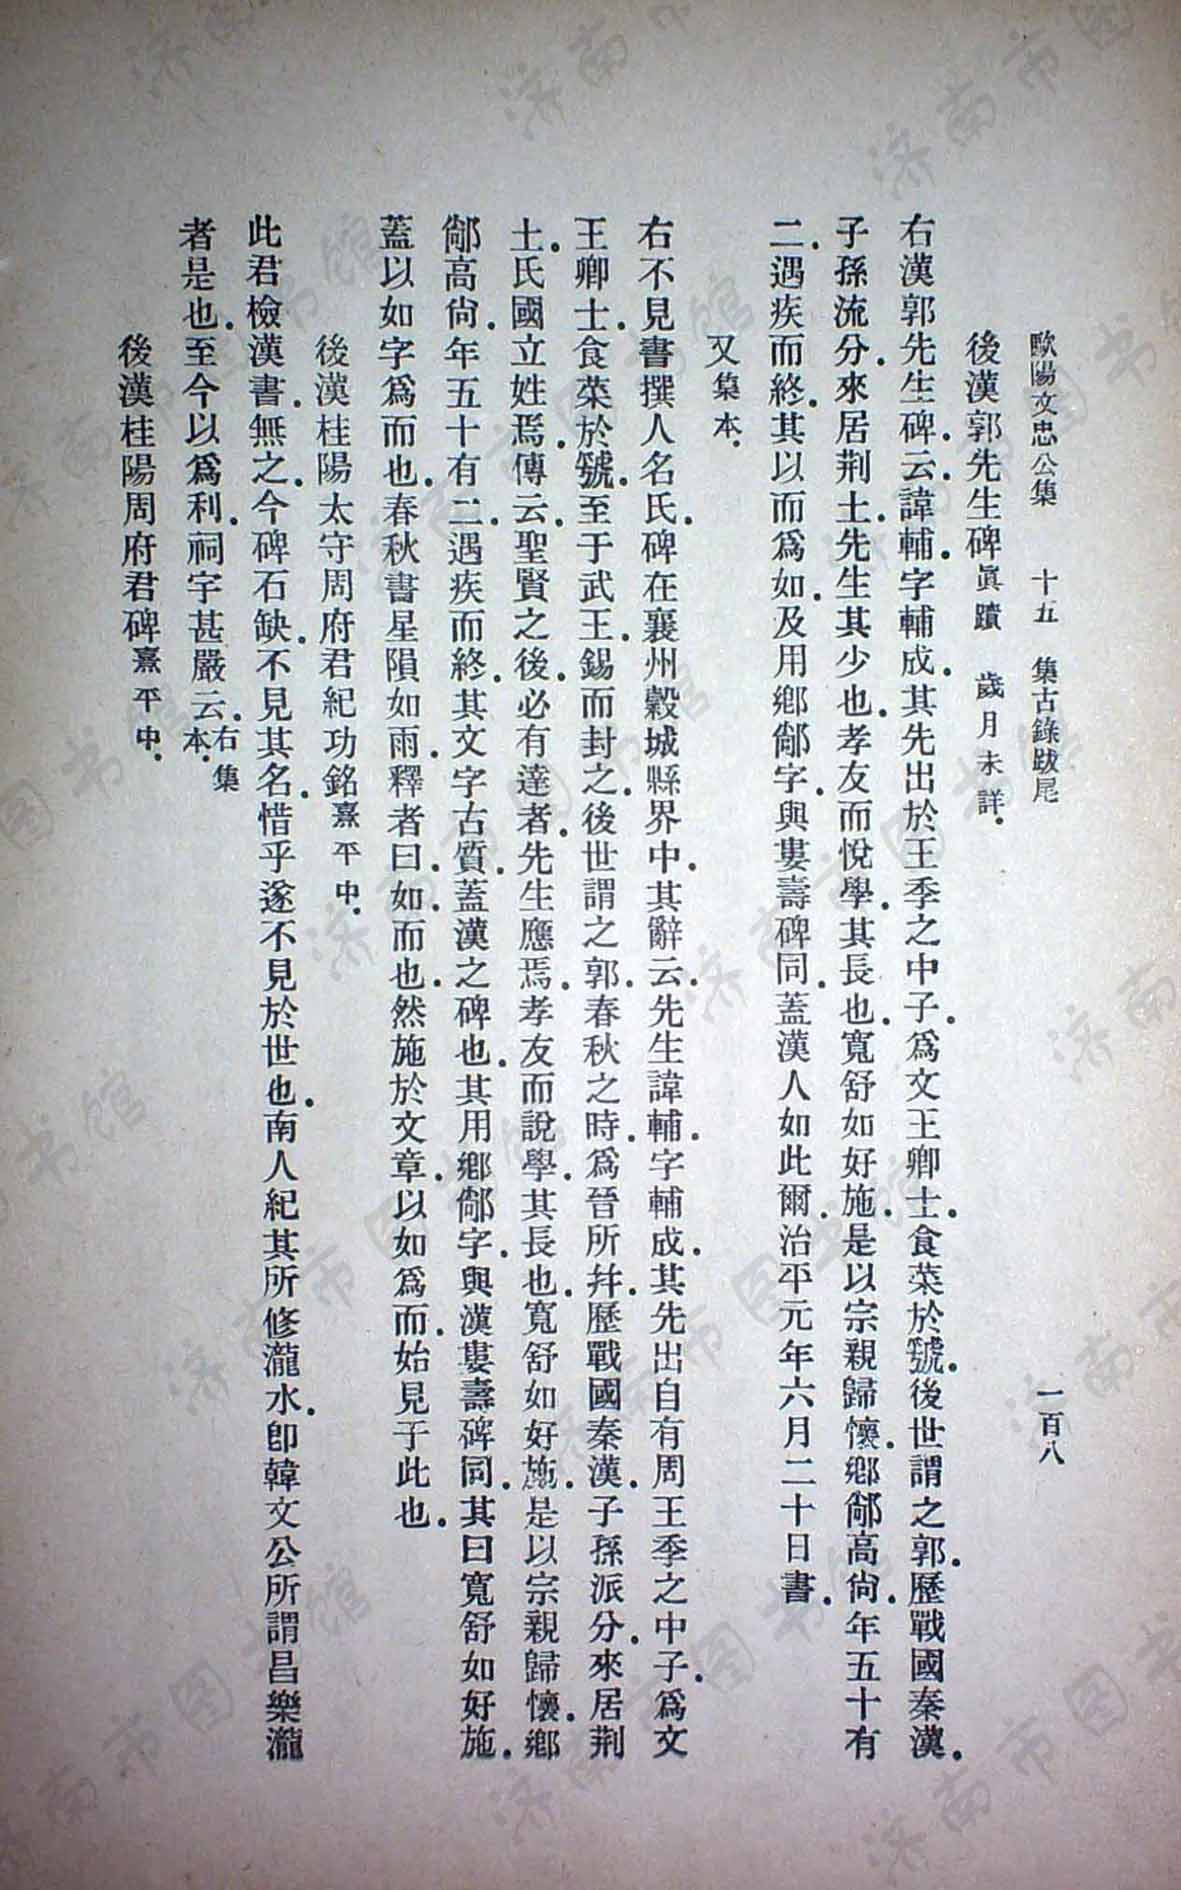 歐陽文忠公集　十五　集古錄跋尾　一百八
後漢郭先生碑眞蹟　歲月未詳．
右漢郭先生碑．云．諱輔．字輔成．其先出於王季之中子．爲文王卿士．食菜於虢．後世謂之郭．歷戰國秦漢．
子孫流分．來居荆土．先生其少也．孝友而悅學．其長也．寬舒如好施．是以宗親歸懷．鄉鄰高尙．年五十有
二．遇疾而終．其以而爲如．及用鄉鄰字．與婁壽碑同．蓋漢人如此爾．治平元年六月二十日書．
又集本．
右不見書撰人名氏．碑在襄州穀城縣界中．其辭云．先生諱輔．字輔成．其先出自有周王季之中子．爲文
王卿士．食菜於虢．至于武王．錫而封之．後世謂之郭．春秋之時．爲晉所幷．歷戰國秦漢．子孫派分．來居荆
土．氏國立姓焉．傳云．聖賢之後．必有達者．先生應焉．孝友而說學．其長也．寬舒如好施．是以宗親歸懷．鄉
鄰高尙．年五十有二．遇疾而終．其文字古質．蓋漢之碑也．其用鄉鄰字．與漢婁壽碑同．其曰寬舒如好施．
蓋以如字爲而也．春秋書星隕如雨．釋者曰．如．而也．然施於文章．以如爲而．始見于此也．
後漢桂陽太守周府君紀功銘熹平中．
此君檢漢書．無之．今碑石缺．不見其名．惜乎遂不見於世也．南人紀其所修瀧水．卽韓文公所謂昌樂瀧
者是也．至今以爲利．祠宇甚嚴云．右集本．
後漢桂陽周府君碑熹平中．
济南市图书馆